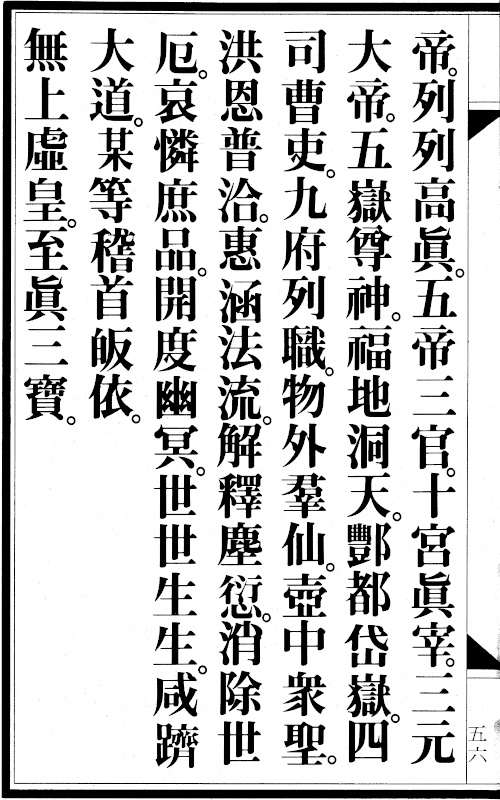 帝。列列高眞。五帝三官。十宮眞宰。三元
大帝。五嶽尊神。福地洞天。酆都岱嶽。四
司曹吏。九府列職。物外羣仙。壺中衆聖。
洪恩普洽。惠涵法流。解釋塵愆。消除世
厄。哀憐庶品。開度幽冥。世世生生。咸躋
大道。某等稽首皈依。
無上虛皇。至眞三寶。
五六